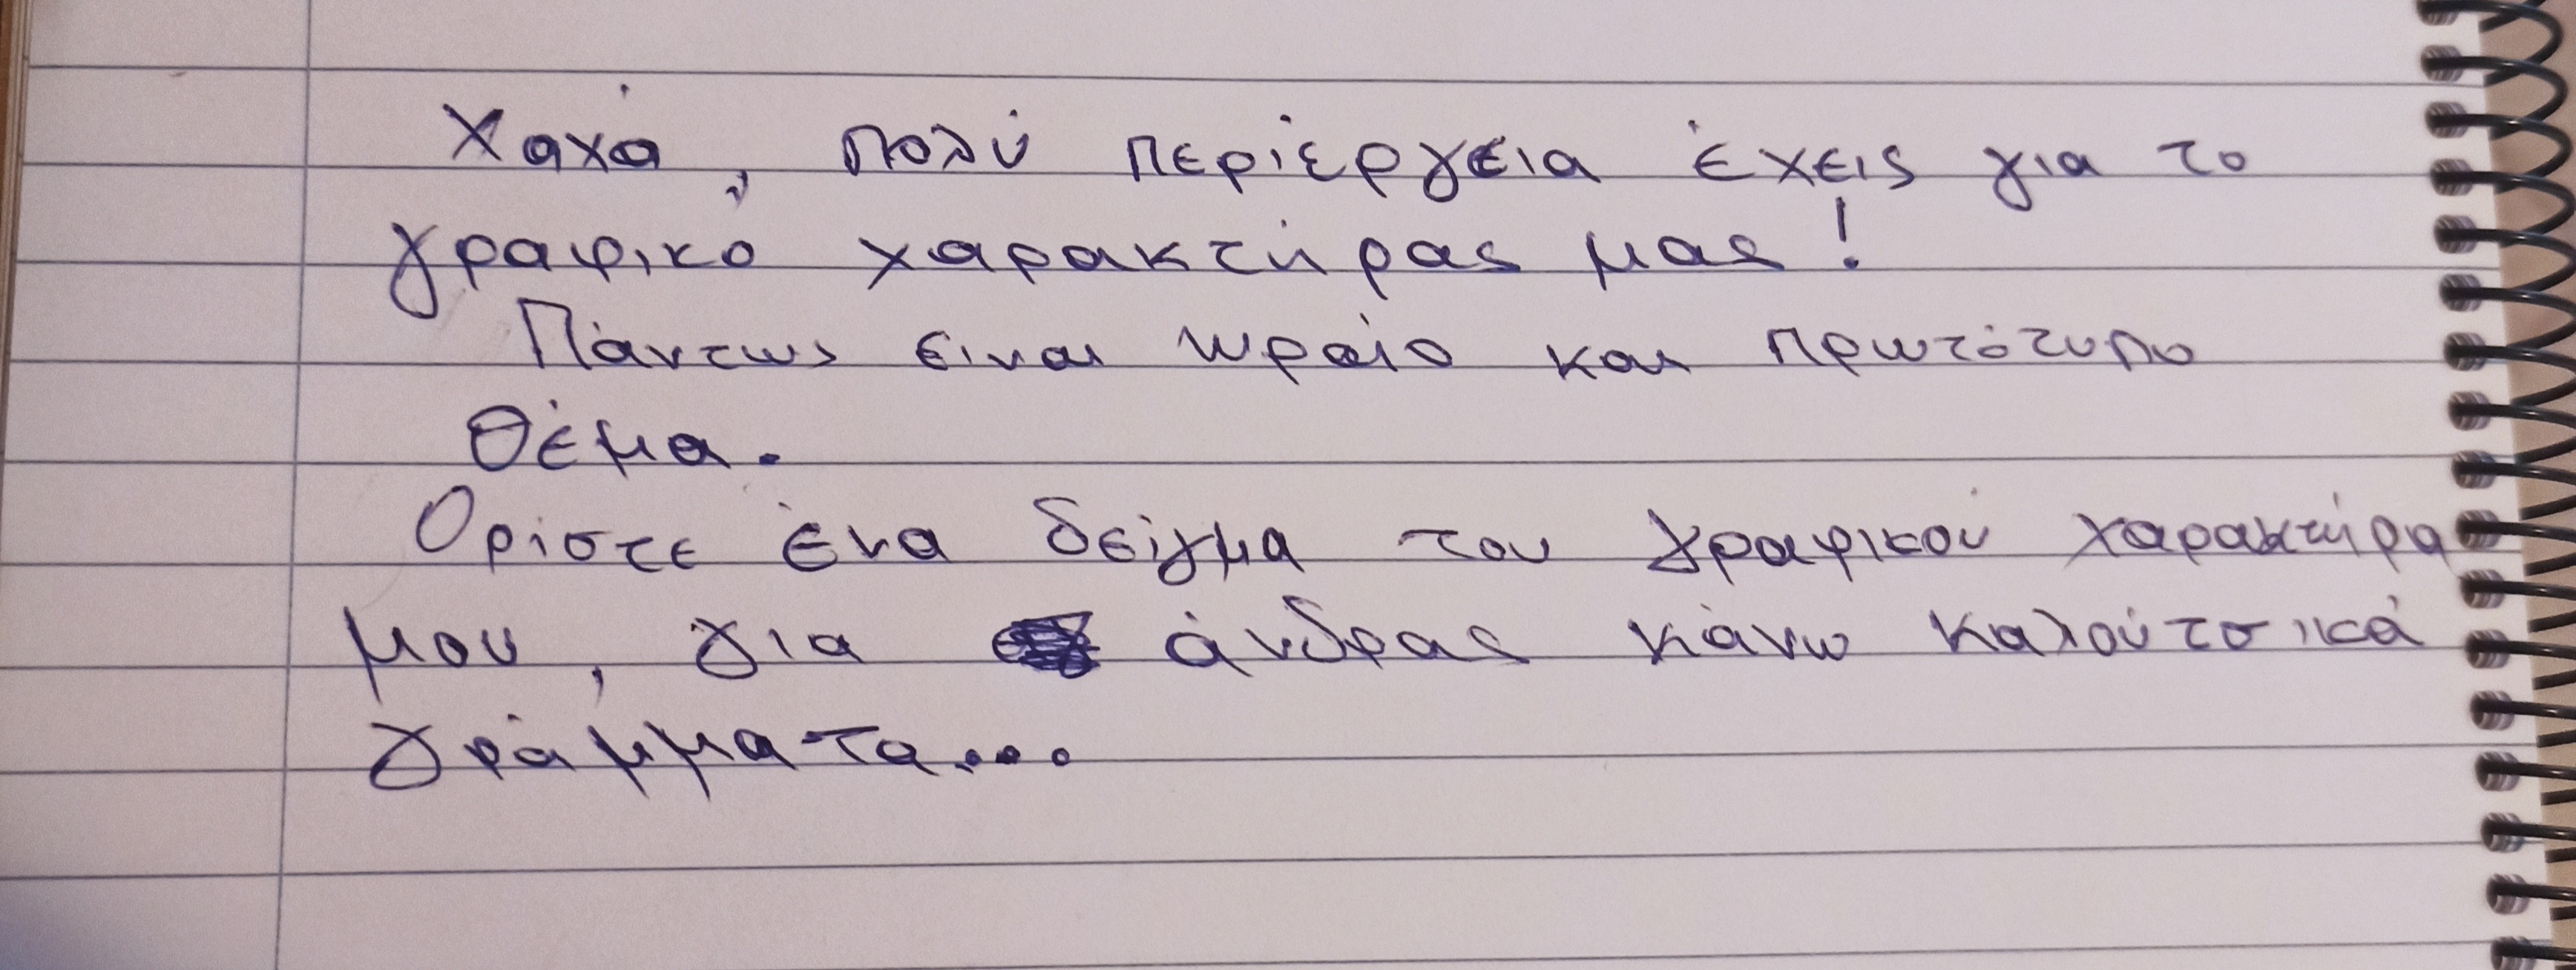 Χαχά, πολύ περίεργεια έχεις για το
γραφικο χαρακτήρας μας!
Πάντως ειναι ωραίο και πρωτότυπο
Θέμα.
Ορίστε ένα δείγμα του γραφικού χαρακτήρα
μου, για άνδρας κάνω καλούτσικά
γράμματα...